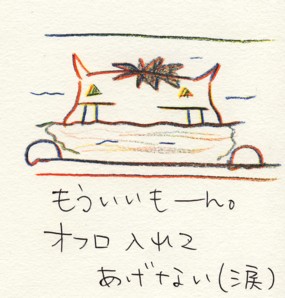 もういいもーん。
オフロ入れて
あげない(涙)